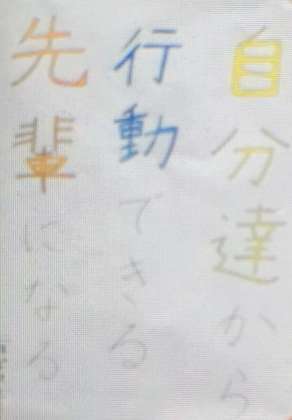 自分達から
行動できる
先輩になる